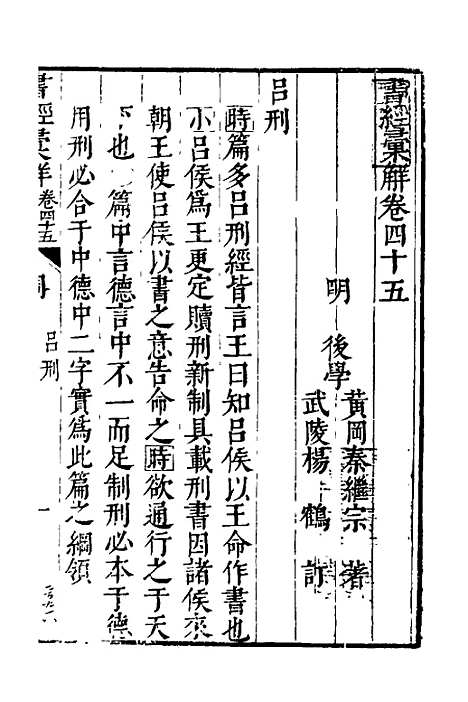 書經彙解卷四十五
明 後學 黃岡秦繼宗 著
武陵楊 鶴 訂
呂刑
時篇多呂刑經皆言王曰知呂侯以王命作書也
呂侯爲王更定贖刑新制具載刑書因諸侯來
朝王使呂侯以書之意告命之時欲通行之于天
下也 篇中言德言中不一而足制刑必本于德
用刑必合于中德中二字實爲此篇之綱領
書經彙解 卷四十五 呂刑 一